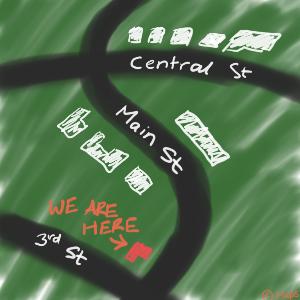 Central St
Main St
WE ARE
HERE
3rd St